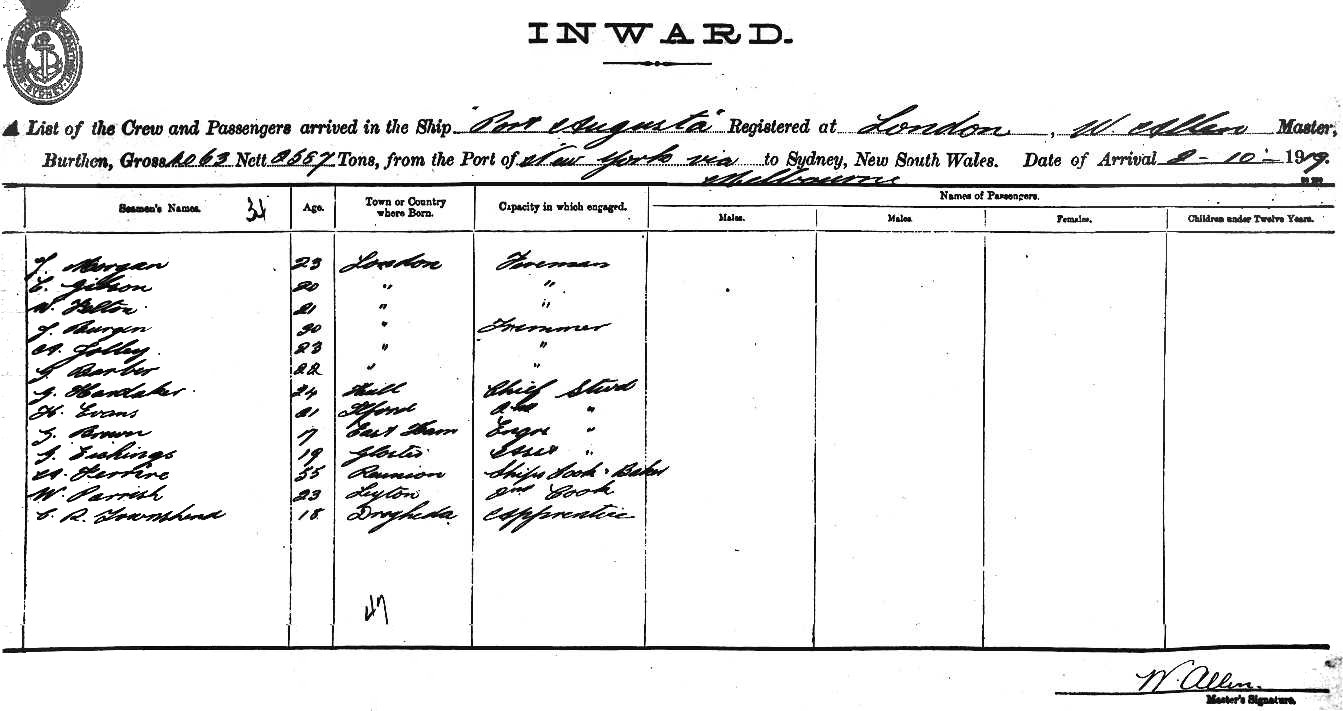 INWARD.
SYDNEY
List of the Crew and Passengers arrived in the Ship "Port Augusta" Registered at London, W. Allen Master,
Burthen, Gross 4063 Nett Tons, from the Port of New York via to Sydney, New South Wales. Date of Arrival 2-10-1919.
Melbourne
Seamen's Names. 34 Age. Town or Country where Born. Capacity in which engaged. Names of Passengers.
Males. Males. Females. Children under Twelve Years.
Morgan 23 London Fireman
C. Gibson 20 " "
W. Felton 21 " "
J. Burgin 30 " Trimmer
A. Jolley 23 " "
G. Barber 22 " "
G. Handaker 24 Hull Chief Stwd
H. Evans 21 Ilford 2nd "
G. Brown 17 East Ham Engrs "
G. 19 Gloster Asst "
A. Ferrire 35 Reunion Ships Cook & Baker
W. Parrish 23 Leyton 2nd Cook
C. R. Townshend 18 Drogheda Apprentice
47
W. Allen.
Master's Signature.